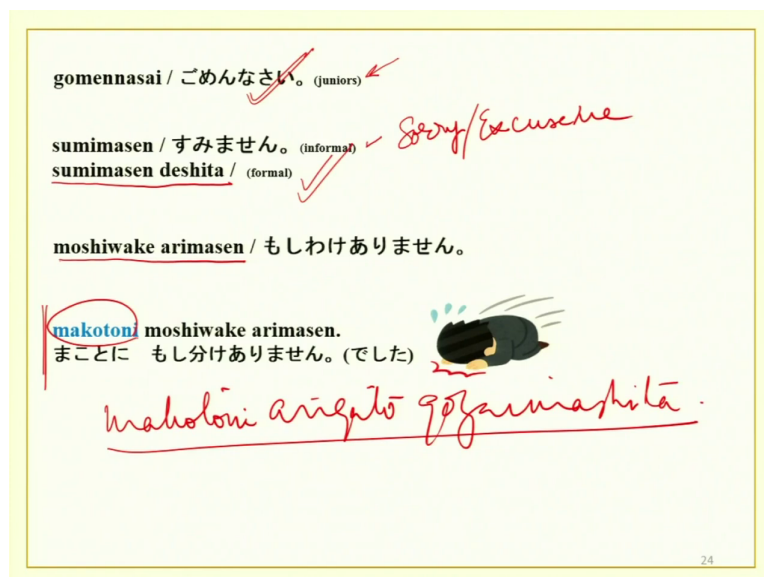 gomennasai / ごめんなさい。(juniors)
sumimasen / すみません。(informal) Sorry/Excuse me
sumimasen deshita / (formal)
moshiwake arimasen / もしわけありません。
makotoni moshiwake arimasen.
まことに もし分けありません。(でした)
makotōni arigātō gozaimashitā.
24